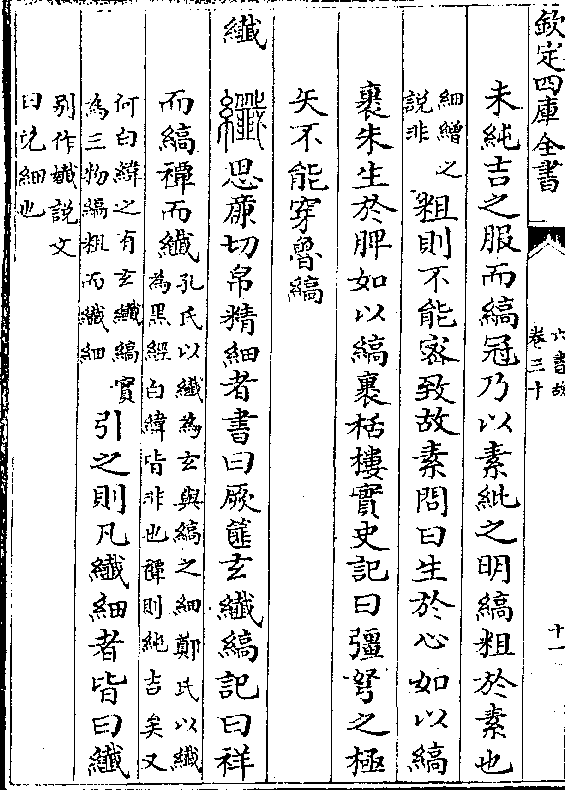 欽定四庫全書
六書故
卷三十
十一
未純吉之服而縞冠乃以素紕之明縞粗於素也
細繒之
說非
粗則不能密致故素問曰生於心如以縞
裹朱生於脾如以縞裹栝樓實史記曰彊弩之極
矢不能穿魯縞
纖
纖思廉切帛精細者書曰厥篚玄纖縞記曰祥
而縞禫而纖
孔氏以纖為玄與縞之細鄭氏以纖
為黑經白緯皆非也禫則純吉矣又
何白緯之有玄纖縞實
為三物縞粗而纖細
引之則凡纖細者皆曰纖
别作孅說文
曰兊細也